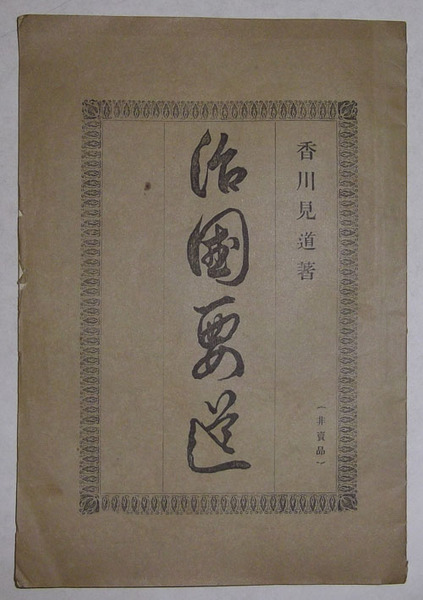 香川見道著
治国要道
（非賣品）